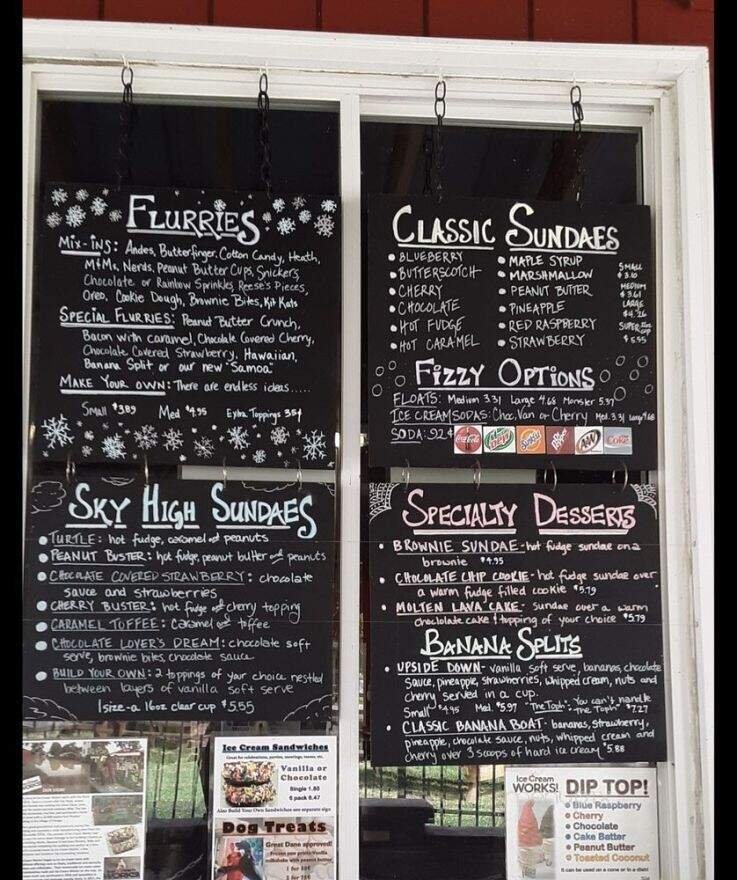 FLURRIES
MIX-INS: Andes, Butterfinger, Cotton Candy, Heath,
M&Ms, Nerds, Peanut Butter Cups, Snickers
Chocolate or Rainbow Sprinkles, Reese's Pieces,
Oreo, Cookie Dough, Brownie Bites, Kit Kats
SPECIAL FLURRIES: Peanut Butter Crunch,
Bacon with caramel, Chocolate Covered Cherry,
Chocolate Covered Strawberry, Hawaiian,
Banana Split or our new "Samoa"
MAKE YOUR OWN: There are endless ideas.....
Small $3.89 Med $4.95 Extra Toppings 35¢
CLASSIC SUNDAES
• BLUEBERRY
• BUTTERSCOTCH
• CHERRY
• CHOCOLATE
• HOT FUDGE
• HOT CARAMEL
• MAPLE SYRUP
• MARSHMALLOW
• PEANUT BUTTER
• PINEAPPLE
• RED RASPBERRY
• STRAWBERRY
SMALL
MEDIUM
$3.61
LARGE
$4.26
SUPER
$5.55
FIZZY OPTIONS
FLOATS: Medium 3.31 Large 4.68 Monster 5.37
ICE CREAM SODAS: Choc, Van or Cherry Med. 3.31 Large 4.68
SODA: .92¢ Coca-Cola Mtn Dew Sunkist A&W Diet Coke
SKY HIGH SUNDAES
• TURTLE: hot fudge, caramel and peanuts
• PEANUT BUSTER: hot fudge, peanut butter and peanuts
• CHOCOLATE COVERED STRAWBERRY: chocolate
sauce and strawberries
• CHERRY BUSTER: hot fudge and cherry topping
• CARAMEL TOFFEE: Caramel and toffee
• CHOCOLATE LOVER'S DREAM: chocolate soft
serve, brownie bites, chocolate sauce
• BUILD YOUR OWN: 2 toppings of your choice nestled
between layers of vanilla soft serve
1 size-a 16oz clear cup $5.55
SPECIALTY DESSERTS
• BROWNIE SUNDAE - hot fudge sundae on a
brownie $4.95
• CHOCOLATE CHIP COOKIE - hot fudge sundae over
a warm fudge filled cookie $5.79
• MOLTEN LAVA CAKE - Sundae over a warm
choclolate cake & topping of your choice $5.79
BANANA SPLITS
• UPSIDE DOWN - vanilla soft serve, bananas, chocolate
sauce, pineapple, strawberries, whipped cream, nuts and
cherry served in a cup.
Small $4.95 Med. $5.97 "The Toph": You can't handle "The Toph" $7.27
• CLASSIC BANANA BOAT - bananas, strawberry,
pineapple, chocolate sauce, nuts, whipped cream and
cherry over 3 scoops of hard ice cream $5.88
Ice Cream Sandwiches
Great for celebrations, parties, meetings, teams, etc.
Vanilla or
Chocolate
Single 1.80
6 pack 8.47
Also Build Your Own Sandwiches see separate sign
Dog Treats
Great Dane approved!
Frozen paw prints: Vanilla
milkshake with peanut butter
Ice Cream
WORKS!
DIP TOP!
• Blue Raspberry
• Cherry
• Chocolate
• Cake Batter
• Peanut Butter
• Toasted Coconut
It can be used on a cone or in a dish!